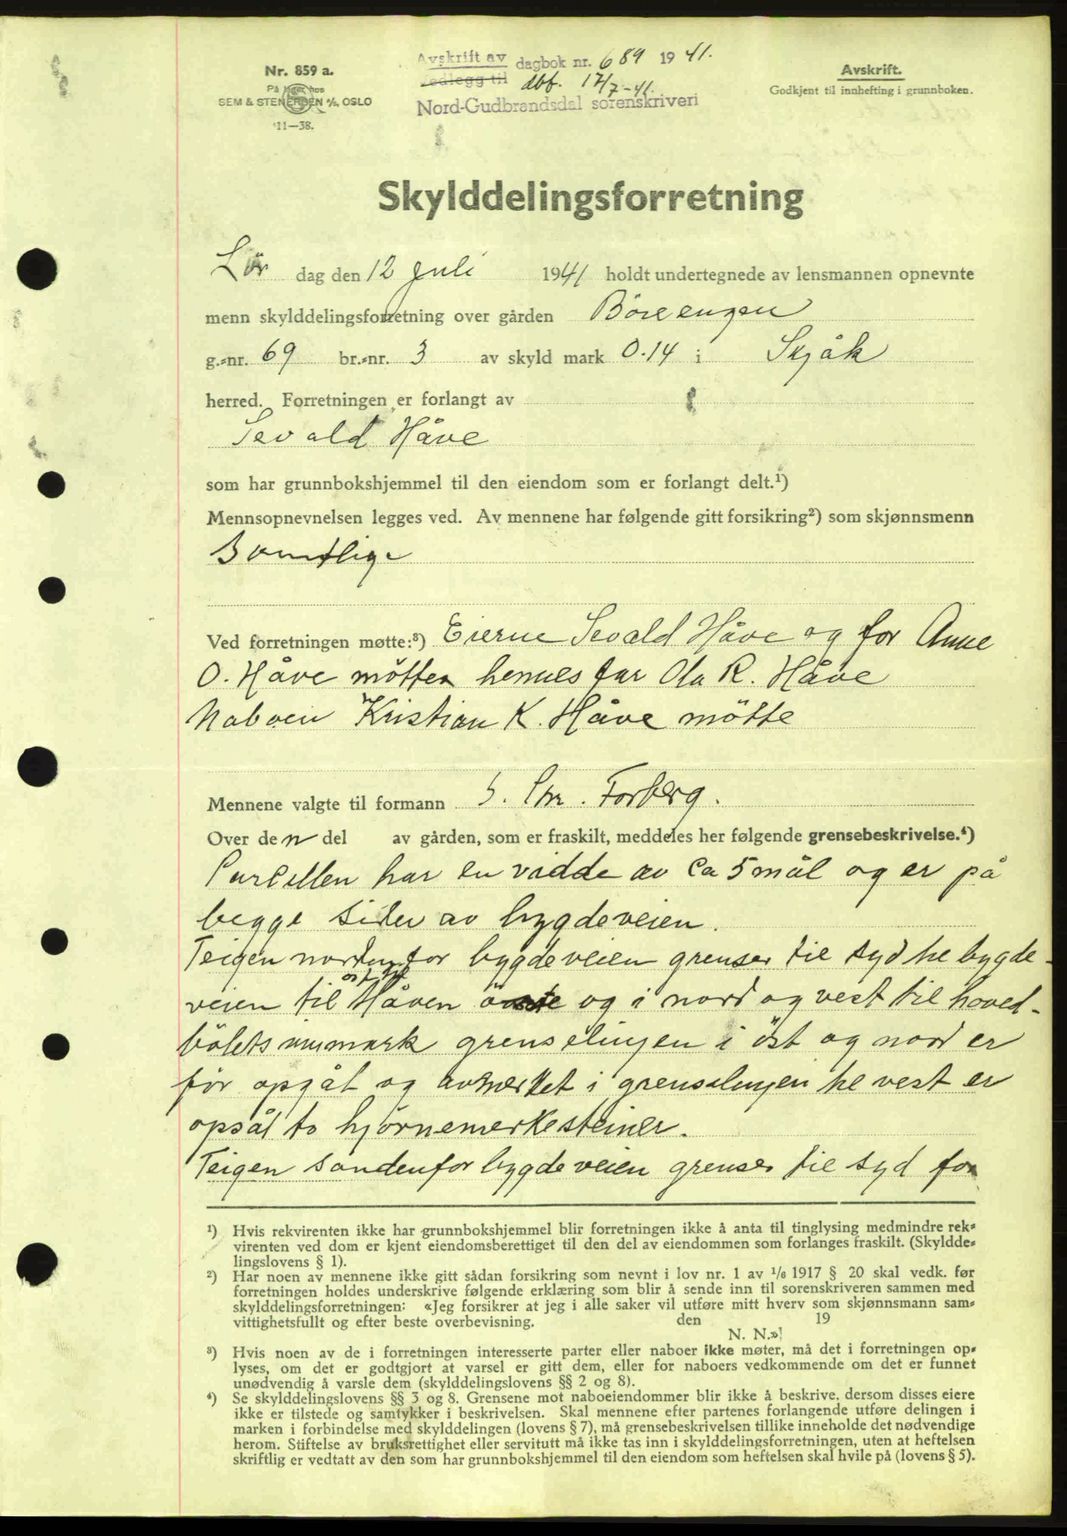 Nr. 859 a.
På lager hos
SEM & STENERSEN A/S, OSLO
11—38.
Avskrift av dagbok nr. 689 1941.
Vedlegg til dbf. 17/7-41.
Nord-Gudbrandsdal sorenskriveri
Avskrift.
Godkjent til innhefting i grunnboken.
Skylddelingsforretning
Lör dag den 12 juli 1941 holdt undertegnede av lensmannen opnevnte
menn skylddelingsforretning over gården Böreengen
g.-nr. 69 br.-nr. 3 av skyld mark 0.14 i Skjåk
herred. Forretningen er forlangt av
Sevald Håve
som har grunnbokshjemmel til den eiendom som er forlangt delt.¹)
Mennsopnevnelsen legges ved. Av mennene har følgende gitt forsikring²) som skjønnsmenn
Samtlige
Ved forretningen møtte:³) Eierne Sevald Håve og for Anne
O. Håve mötte hennes far Ola R. Håve
Naboen Kristian K. Håve mötte
Mennene valgte til formann S. Chr. Forberg.
Over den del av gården, som er fraskilt, meddeles her følgende grensebeskrivelse.⁴)
Parcellen har en vidde av ca 5 mål og er på
begge sider av bygdeveien.
Teigen nordenfor bygdeveien grenser til syd he bygde-
veien til Håven østre og i nord og vest til hoved-
bölets innmark grenselinjen i öst og nord er
för opgåt og avmerket i grenselinjen he vest er
opsåt to hjörnemerkesteiner.
Teigen söndenfor bygdeveien grenser til syd for
¹) Hvis rekvirenten ikke har grunnbokshjemmel blir forretningen ikke å anta til tinglysing medmindre rek-
virenten ved dom er kjent eiendomsberettiget til den del av eiendommen som forlanges fraskilt. (Skyldde-
lingslovens § 1).
²) Har noen av mennene ikke gitt sådan forsikring som nevnt i lov nr. 1 av 1/6 1917 § 20 skal vedk. før
forretningen holdes underskrive følgende erklæring som blir å sende inn til sorenskriveren sammen med
skylddelingsforretningen: «Jeg forsikrer at jeg i alle saker vil utføre mitt hverv som skjønnsmann sam-
vittighetsfullt og efter beste overbevisning. den 19
N. N.»!
³) Hvis noen av de i forretningen interesserte parter eller naboer ikke møter, må det i forretningen op-
lyses, om det er godtgjort at varsel er gitt dem, eller for naboers vedkommende om det er funnet
unødvendig å varsle dem (skylddelingslovens §§ 2 og 8).
⁴) Se skylddelingslovens §§ 3 og 8. Grensene mot naboeiendommer blir ikke å beskrive, dersom disses eiere
ikke er tilstede og samtykker i beskrivelsen. Skal mennene efter partenes forlangende utføre delingen i
marken i forbindelse med skylddelingen (lovens § 7), må grensebeskrivelsen tillike inneholde det nødvendige
herom. Stiftelse av bruksrettighet eller servitutt må ikke tas inn i skylddelingsforretningen, uten at heftelsen
skriftlig er vedtatt av den som har grunnbokshjemmel til den eiendom som heftelsen skal hvile på (lovens § 5).